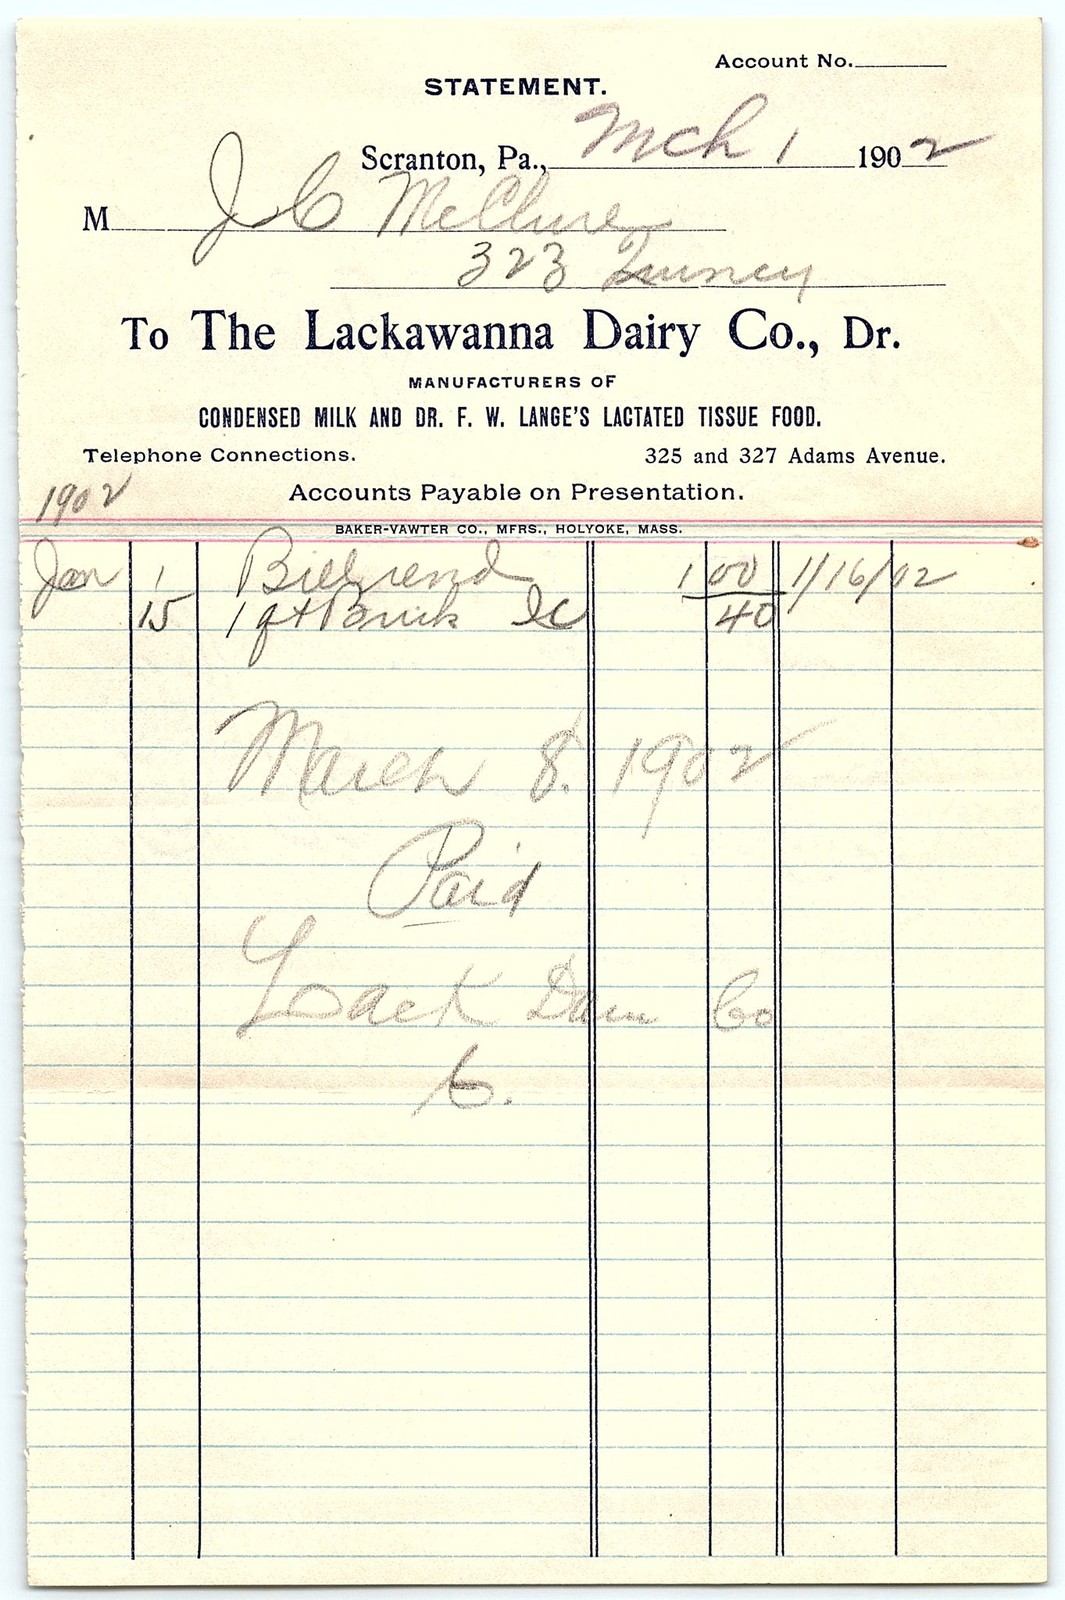 Account No.
STATEMENT.
Scranton, Pa., Mch 1 1902
M J C McClure
323 Quincy
To The Lackawanna Dairy Co., Dr.
MANUFACTURERS OF
CONDENSED MILK AND DR. F. W. LANGE'S LACTATED TISSUE FOOD.
Telephone Connections. 325 and 327 Adams Avenue.
Accounts Payable on Presentation.
1902
BAKER-VAWTER CO., MFRS., HOLYOKE, MASS.
Jan 1 Bill rend 1 00 1/16/02
15 1 qt Brick IC 40
March 8. 1902
Paid
Lack Co